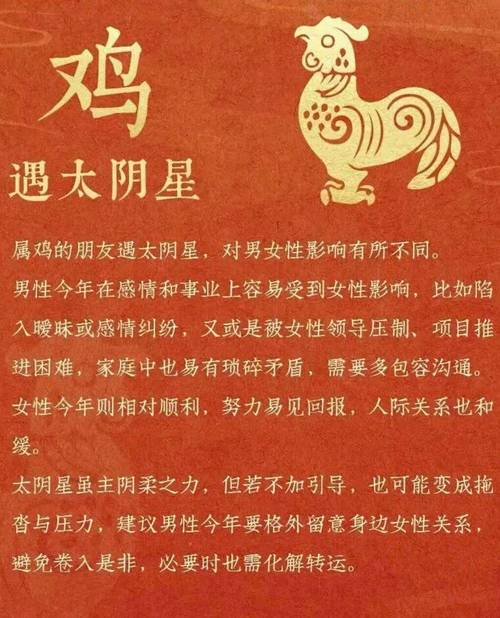 鸡
遇太阴星
属鸡的朋友遇太阴星，对男女性影响有所不同。
男性今年在感情和事业上容易受到女性影响，比如陷
入暧昧或感情纠纷，又或是被女性领导压制、项目推
进困难，家庭中也易有琐碎矛盾，需要多包容沟通。
女性今年则相对顺利，努力易见回报，人际关系也和
缓。
太阴星虽主阴柔之力，但若不加引导，也可能变成拖
沓与压力，建议男性今年要格外留意身边女性关系，
避免卷入是非，必要时也需化解转运。